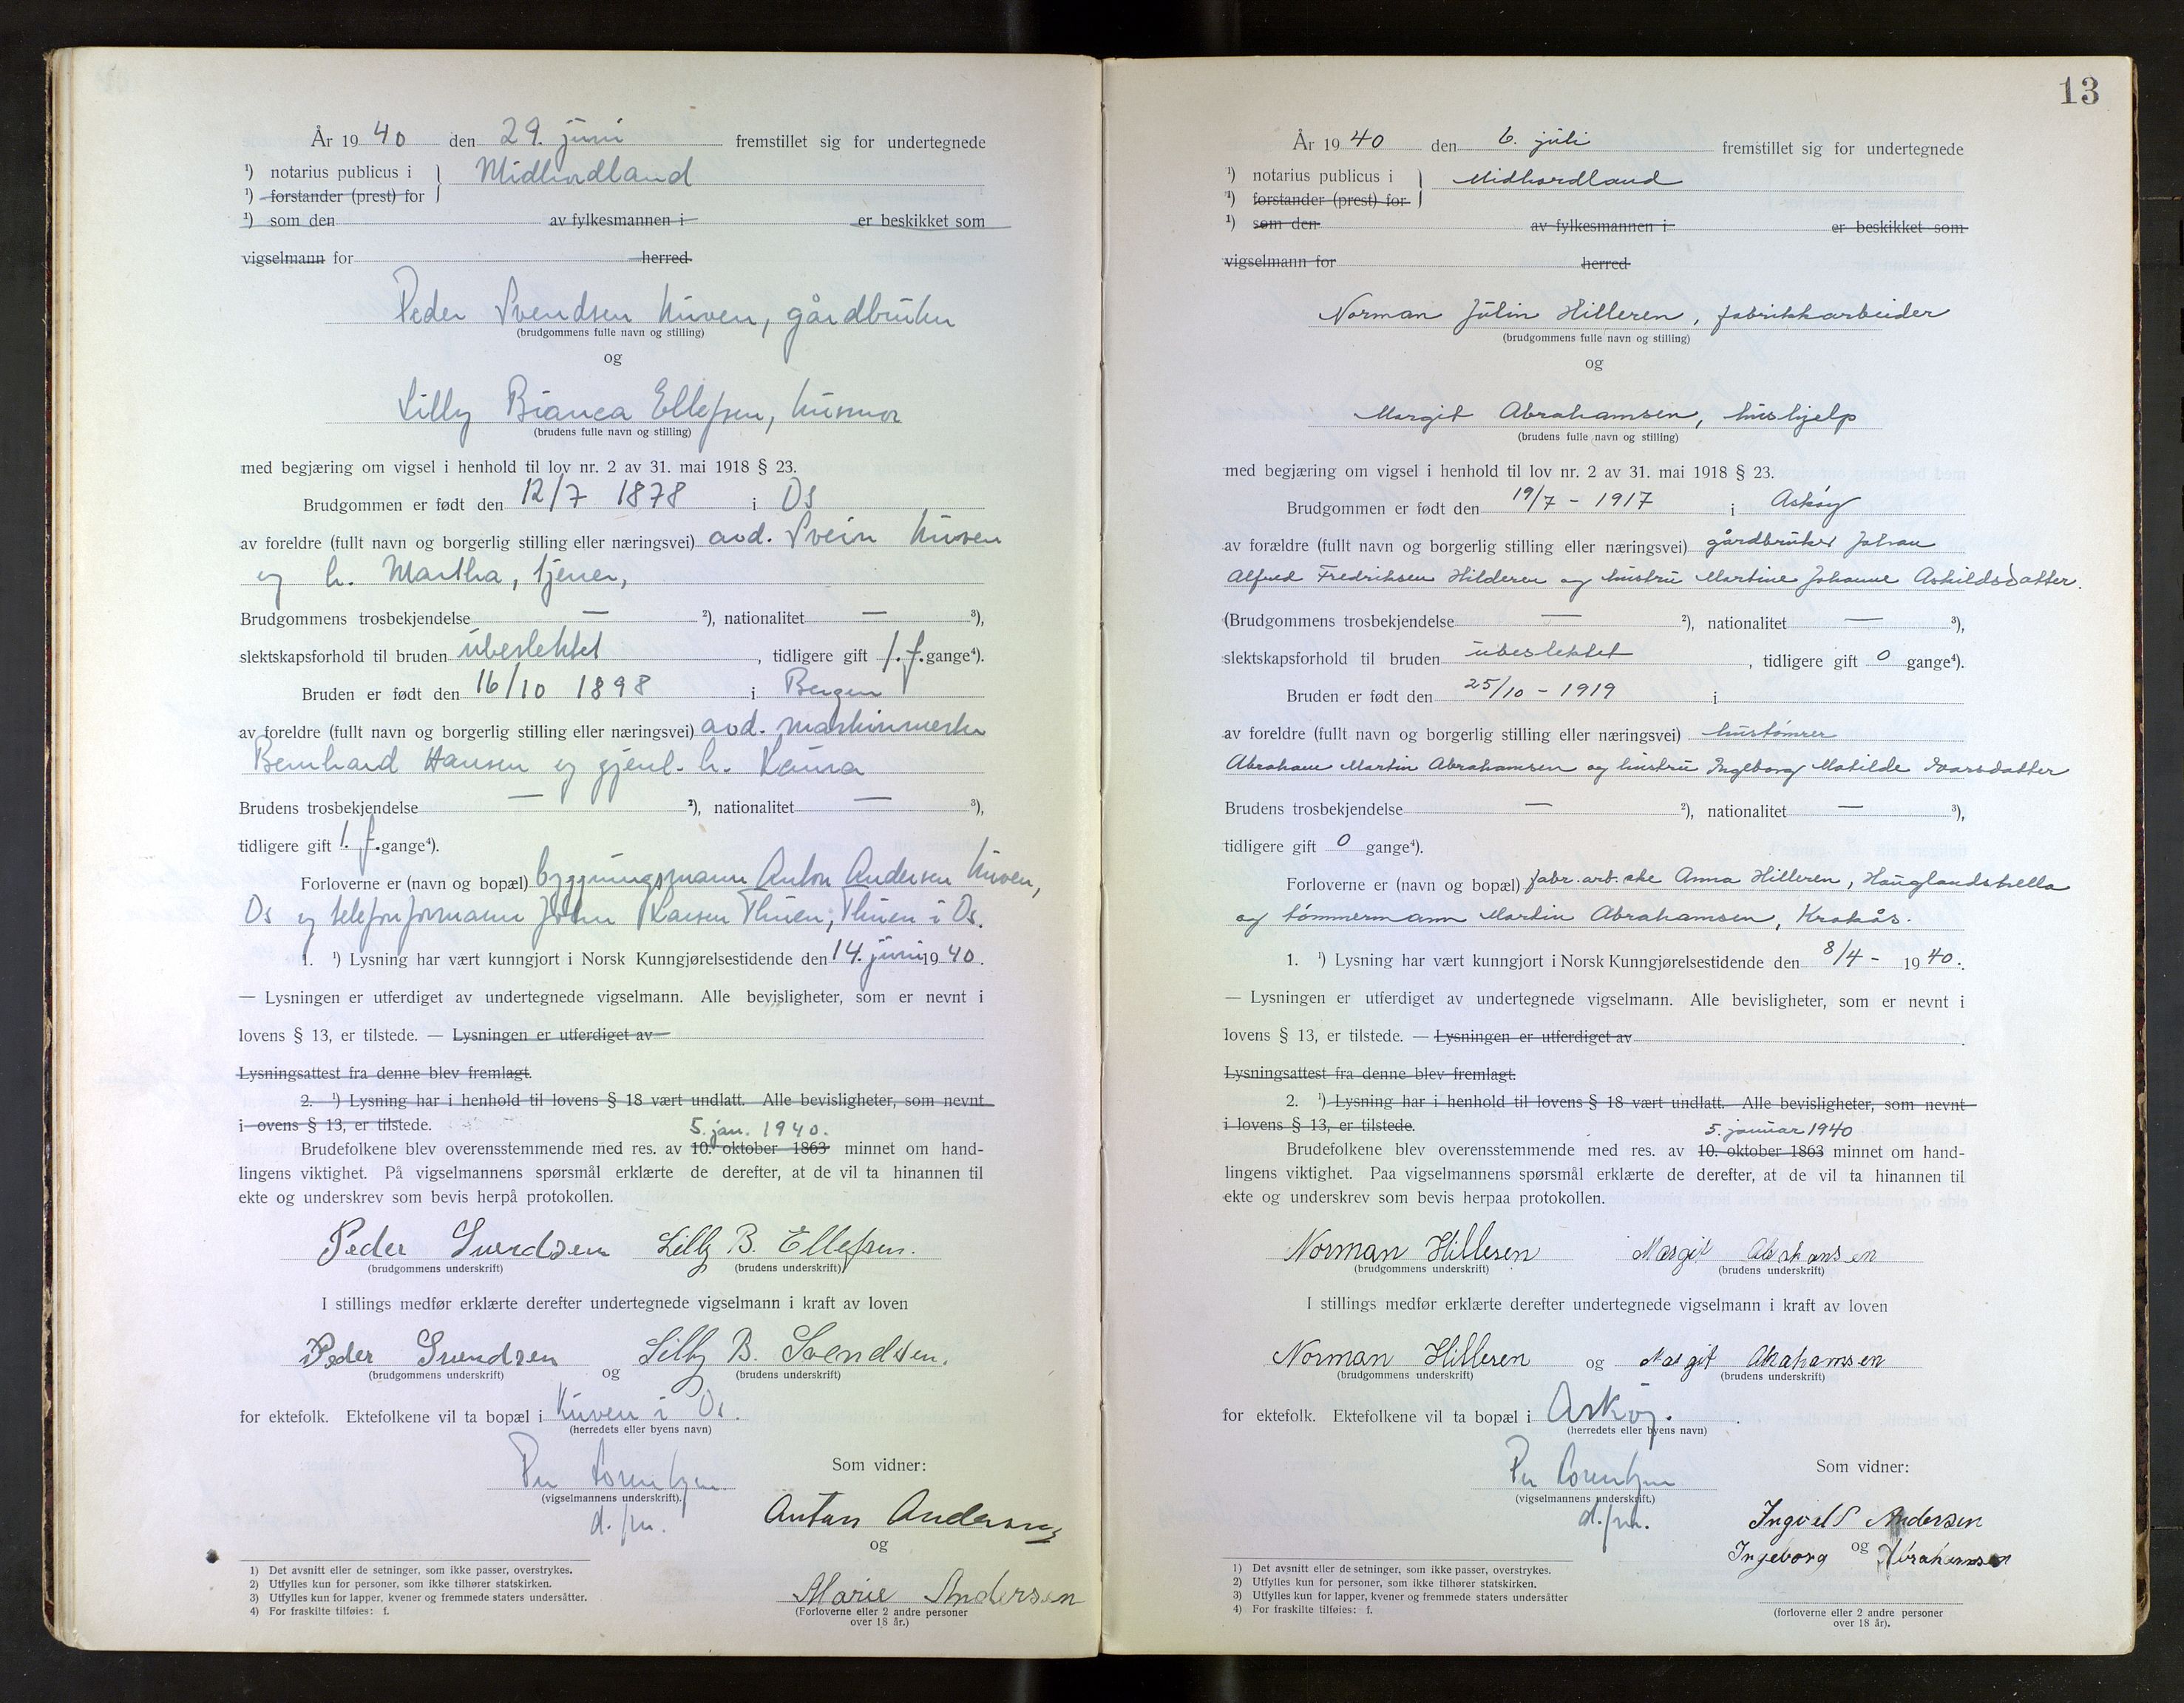 År 1940 den 29. juni fremstillet sig for undertegnede
¹) notarius publicus i } Midhordland
¹) forstander (prest) for
¹) som den av fylkesmannen i er beskikket som
vigselmann for herred
Peder Svendsen Kuven, gårdbruker
(brudgommens fulle navn og stilling)
og
Lilly Bianca Ellefsen, husmor
(brudens fulle navn og stilling)
med begjæring om vigsel i henhold til lov nr. 2 av 31. mai 1918 § 23.
Brudgommen er født den 12/7 1878 i Os
av foreldre (fullt navn og borgerlig stilling eller næringsvei) avd. Svein Kuven
og h. Martha, tjener,
Brudgommens trosbekjendelse — ²), nationalitet — ³),
slektskapsforhold til bruden ubeslektet, tidligere gift 1. f. gange⁴).
Bruden er født den 16/10 1898 i Bergen
av foreldre (fullt navn og borgerlig stilling eller næringsvei) avd. maskinmester
Bernhard Hansen og gjenl. h. Laura
Brudens trosbekjendelse — ²), nationalitet — ³),
tidligere gift 1. f. gange⁴).
Forloverne er (navn og bopæl) bygningsmann Anton Andersen Kuven,
Os og telefonformann Johan Larsen Thuen, Thuen i Os.
1. ¹) Lysning har vært kunngjort i Norsk Kunngjørelsestidende den 14. juni 1940.
— Lysningen er utferdiget av undertegnede vigselmann. Alle bevisligheter, som er nevnt i
lovens § 13, er tilstede. — Lysningen er utferdiget av
Lysningsattest fra denne blev fremlagt.
2. ¹) Lysning har i henhold til lovens § 18 vært undlatt. Alle bevisligheter, som nevnt
i ovens § 13, er tilstede.
5. jan. 1940.
Brudefolkene blev overensstemmende med res. av 10. oktober 1863 minnet om hand-
lingens viktighet. På vigselmannens spørsmål erklærte de derefter, at de vil ta hinannen til
ekte og underskrev som bevis herpå protokollen.
Peder Svendsen Lilly B. Ellefsen.
(brudgommens underskrift) (brudens underskrift)
I stillings medfør erklærte derefter undertegnede vigselmann i kraft av loven
Peder Svendsen og Lilly B. Svendsen.
(brudgommens underskrift) (brudens underskrift)
for ektefolk. Ektefolkene vil ta bopæl i Kuven i Os.
(herredets eller byens navn)
Per Lorentzen
(vigselmannens underskrift).
d. fm.
Som vidner:
Anton Andersen
og
Marie Andersen
(Forloverne eller 2 andre personer
over 18 år.)
1) Det avsnitt eller de setninger, som ikke passer, overstrykes.
2) Utfylles kun for personer, som ikke tilhører statskirken.
3) Utfylles kun for lapper, kvener og fremmede staters undersåtter.
4) For fraskilte tilføies: f.
13
År 1940 den 6. juli fremstillet sig for undertegnede
¹) notarius publicus i } Midhordland
¹) forstander (prest) for
¹) som den av fylkesmannen i er beskikket som
vigselmann for herred
Norman Julin Hilleren, fabrikkarbeider
(brudgommens fulle navn og stilling)
og
Margit Abrahamsen, hushjelp
(brudens fulle navn og stilling)
med begjæring om vigsel i henhold til lov nr. 2 av 31. mai 1918 § 23.
Brudgommen er født den 19/7 - 1917 i Askøy
av forældre (fullt navn og borgerlig stilling eller næringsvei) gårdbruker Johan
Alfred Fredriksen Hilderen og hustru Martine Johanne Askildsdatter.
(Brudgommens trosbekjendelse — ²), nationalitet — ³),
slektskapsforhold til bruden ubeslektet, tidligere gift 0 gange⁴).
Bruden er født den 25/10 - 1919 i
av foreldre (fullt navn og borgerlig stilling eller næringsvei) hustømrer
Abraham Martin Abrahamsen og hustru Ingeborg Matilde Ivarsdatter
Brudens trosbekjendelse — ²), nationalitet — ³),
tidligere gift 0 gange⁴).
Forloverne er (navn og bopæl) fabr. arb. ske Anna Hilleren, Hauglandshella
og tømmermann Martin Abrahamsen, Krokås.
1. ¹) Lysning har vært kunngjort i Norsk Kunngjørelsestidende den 8/4 - 1940.
— Lysningen er utferdiget av undertegnede vigselmann. Alle bevisligheter, som er nevnt i
lovens § 13, er tilstede. — Lysningen er utferdiget av
Lysningsattest fra denne blev fremlagt.
2. ¹) Lysning har i henhold til lovens § 18 vært undlatt. Alle bevisligheter, som nevnt
i lovens § 13, er tilstede.
5. januar 1940
Brudefolkene blev overensstemmende med res. av 10. oktober 1863 minnet om hand-
lingens viktighet. Paa vigselmannens spørsmål erklærte de derefter, at de vil ta hinannen til
ekte og underskrev som bevis herpaa protokollen.
Norman Hilleren Margit Abrahamsen
(brudgommens underskrift) (brudens underskrift)
I stillings medfør erklærte derefter undertegnede vigselmann i kraft av loven
Norman Hilleren og Margit Abrahamsen
(brudgommens underskrift) (brudens underskrift)
for ektefolk. Ektefolkene vil ta bopæl i Askøy.
(herredets eller byens navn)
Per Lorentzen
(vigselmannens underskrift.)
d. fm.
Som vidner:
Ingvald Andersen
og
Ingeborg Abrahamsen
(forloverne eller 2 andre personer
over 18 år).
1) Det avsnitt eller de setninger, som ikke passer, overstrykes.
2) Utfylles kun for personer, som ikke tilhører statskirken.
3) Utfylles kun for lapper, kvener og fremmede staters undersåtter
4) For fraskilte tilføies: f.